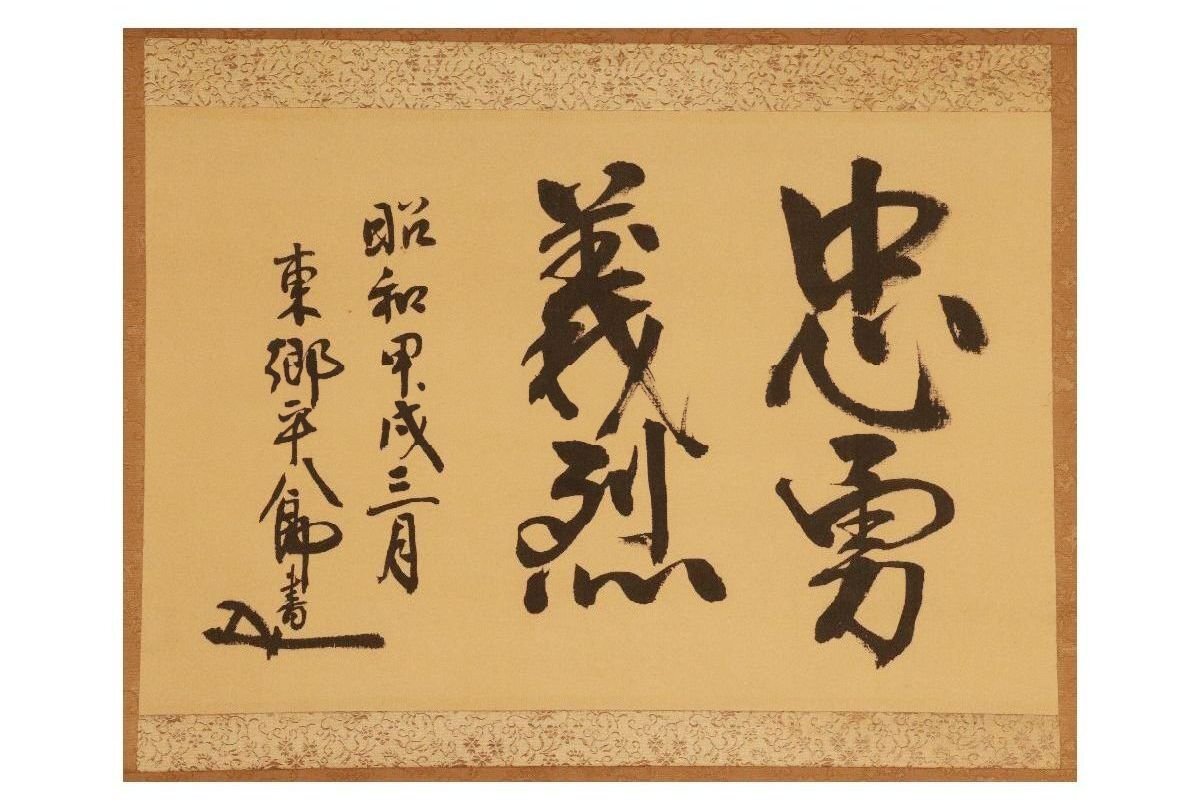 忠勇
義烈
昭和甲戌三月
東郷平八郎書